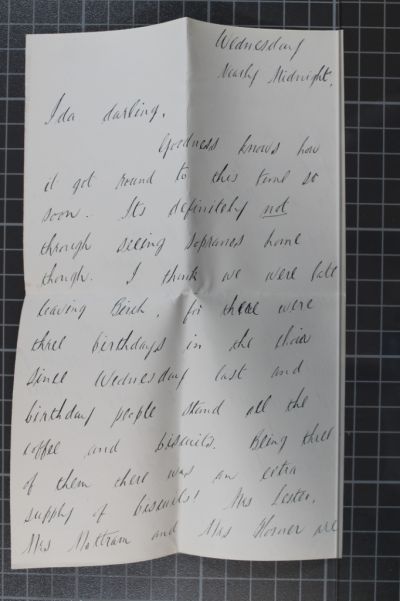 Wednesday
Nearly Midnight.
Ida darling,
Goodness knows how
it got round to this time so
soon. It's definitely not
through seeing sopranos home
though. I think we were late
leaving Birch, for there were
three birthdays in the choir
since Wednesday last and
birthday people stand all the
coffee and biscuits. Being three
of them there was an extra
supply of biscuits! Mrs Lester,
Mrs Mottram and Mrs Horner are